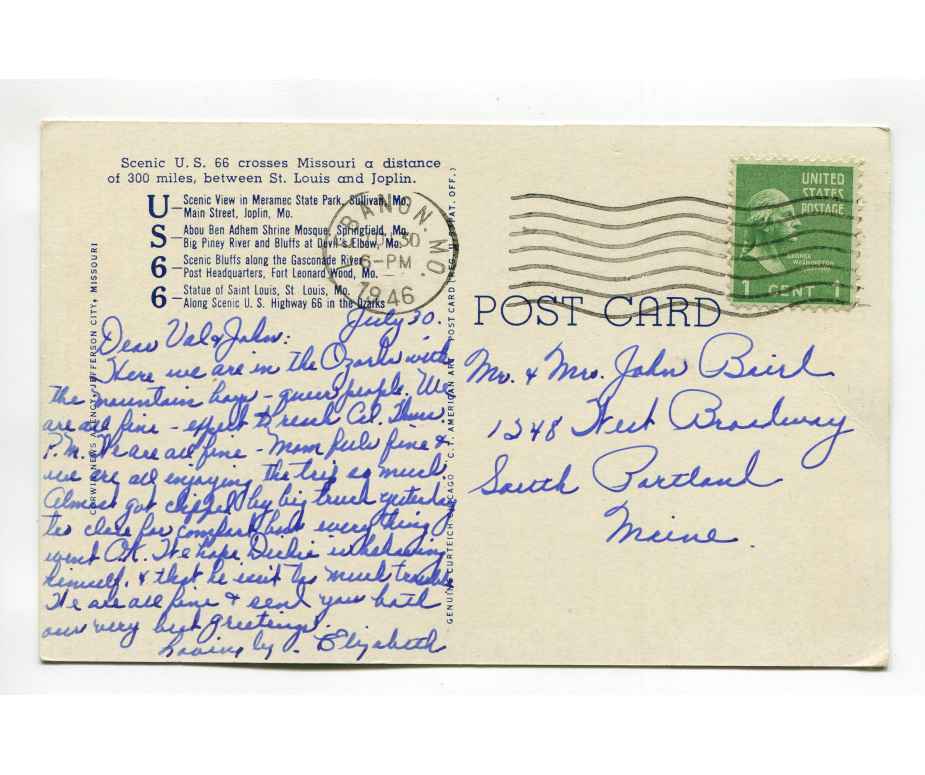 Scenic U. S. 66 crosses Missouri a distance
of 300 miles, between St. Louis and Joplin.
U—Scenic View in Meramec State Park, Sullivan, Mo.
Main Street, Joplin, Mo.
S—Abou Ben Adhem Shrine Mosque, Springfield, Mo.
Big Piney River and Bluffs at Devil's Elbow, Mo.
6—Scenic Bluffs along the Gasconade River
Post Headquarters, Fort Leonard Wood, Mo.
6—Statue of Saint Louis, St. Louis, Mo.
Along Scenic U. S. Highway 66 in the Ozarks
BANON. MO.
30
6-PM
1946
UNITED
STATES
POSTAGE
GEORGE
WASHINGTON
1 CENT 1
POST CARD
CORWIN NEWS AGENCY, JEFFERSON CITY, MISSOURI
GENUINE CURTEICH-CHICAGO C.T. AMERICAN ART POST CARD (REG. U.S. PAT. OFF.)
July 30.
Dear Val & John:
Here we are in the Ozarks with
the mountain boys - queer people. We
are all fine - expect to reach Thurs.
P.M. We are all fine - Mom feels fine &
we are all enjoying the trip so much
Almost got clipped by big truck yesterday
too close for comfort but everything
went O.K. We hope is behaving
himself, & that he isn't too much trouble
We are all fine & send you both
our very best greetings.
Lovingly. Elizabeth
Mr. & Mrs. John Baird
1248 West Broadway
South Portland
Maine.